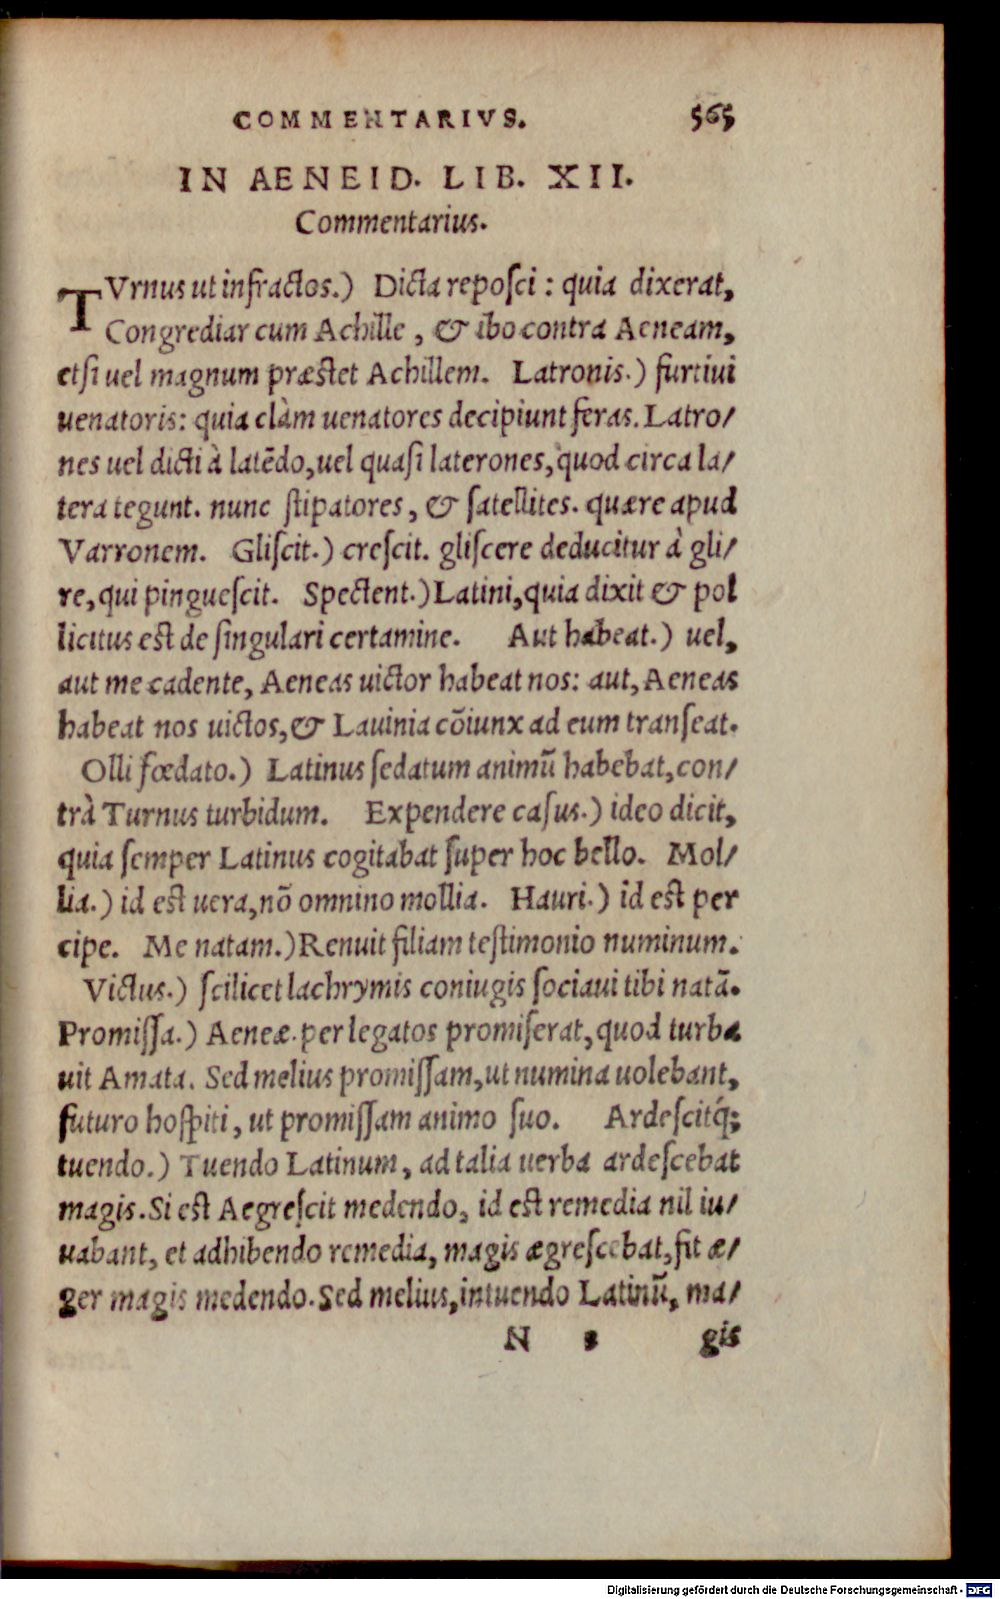 COMMENTARIVS. 565
IN AENEID. LIB. XII.
Commentarius.
TVrnus ut infractos.) Dicta reposci : quia dixerat,
Congrediar cum Achille , & ibo contra Aeneam,
etsi uel magnum præstet Achillem. Latronis.) furtiui
uenatoris: quia clàm uenatores decipiunt feras. Latro/
nes uel dicti à latēdo, uel quasi laterones, quod circa la/
tera tegunt. nunc stipatores , & satellites. quære apud
Varronem. Gliscit.) crescit. gliscere deducitur à gli/
re, qui pinguescit. Spectent.) Latini, quia dixit & pol
licitus est de singulari certamine. Aut habeat.) uel,
aut me cadente, Aeneas uictor habeat nos: aut, Aeneas
habeat nos uictos, & Lauinia cōiunx ad eum transeat.
Olli fœdato.) Latinus sedatum animū habebat, con/
trà Turnus turbidum. Expendere casus.) ideo dicit,
quia semper Latinus cogitabat super hoc bello. Mol/
lia.) id est uera, nō omnino mollia. Hauri.) id est per
cipe. Me natam.) Renuit filiam testimonio numinum.
Victus.) scilicet lachrymis coniugis sociaui tibi natā.
Promissa.) Aeneæ. per legatos promiserat, quod turba
uit Amata. Sed melius promissam, ut numina uolebant,
futuro hospiti , ut promissam animo suo. Ardescitq́;
tuendo.) Tuendo Latinum , ad talia uerba ardescebat
magis. Si est Aegrescit medendo, id est remedia nil iu/
uabant, et adhibendo remedia, magis ægrescebat, fit æ/
ger magis medendo. Sed melius, intuendo Latinū, ma/
N 3 gis
Digitalisierung gefördert durch die Deutsche Forschungsgemeinschaft - DFG